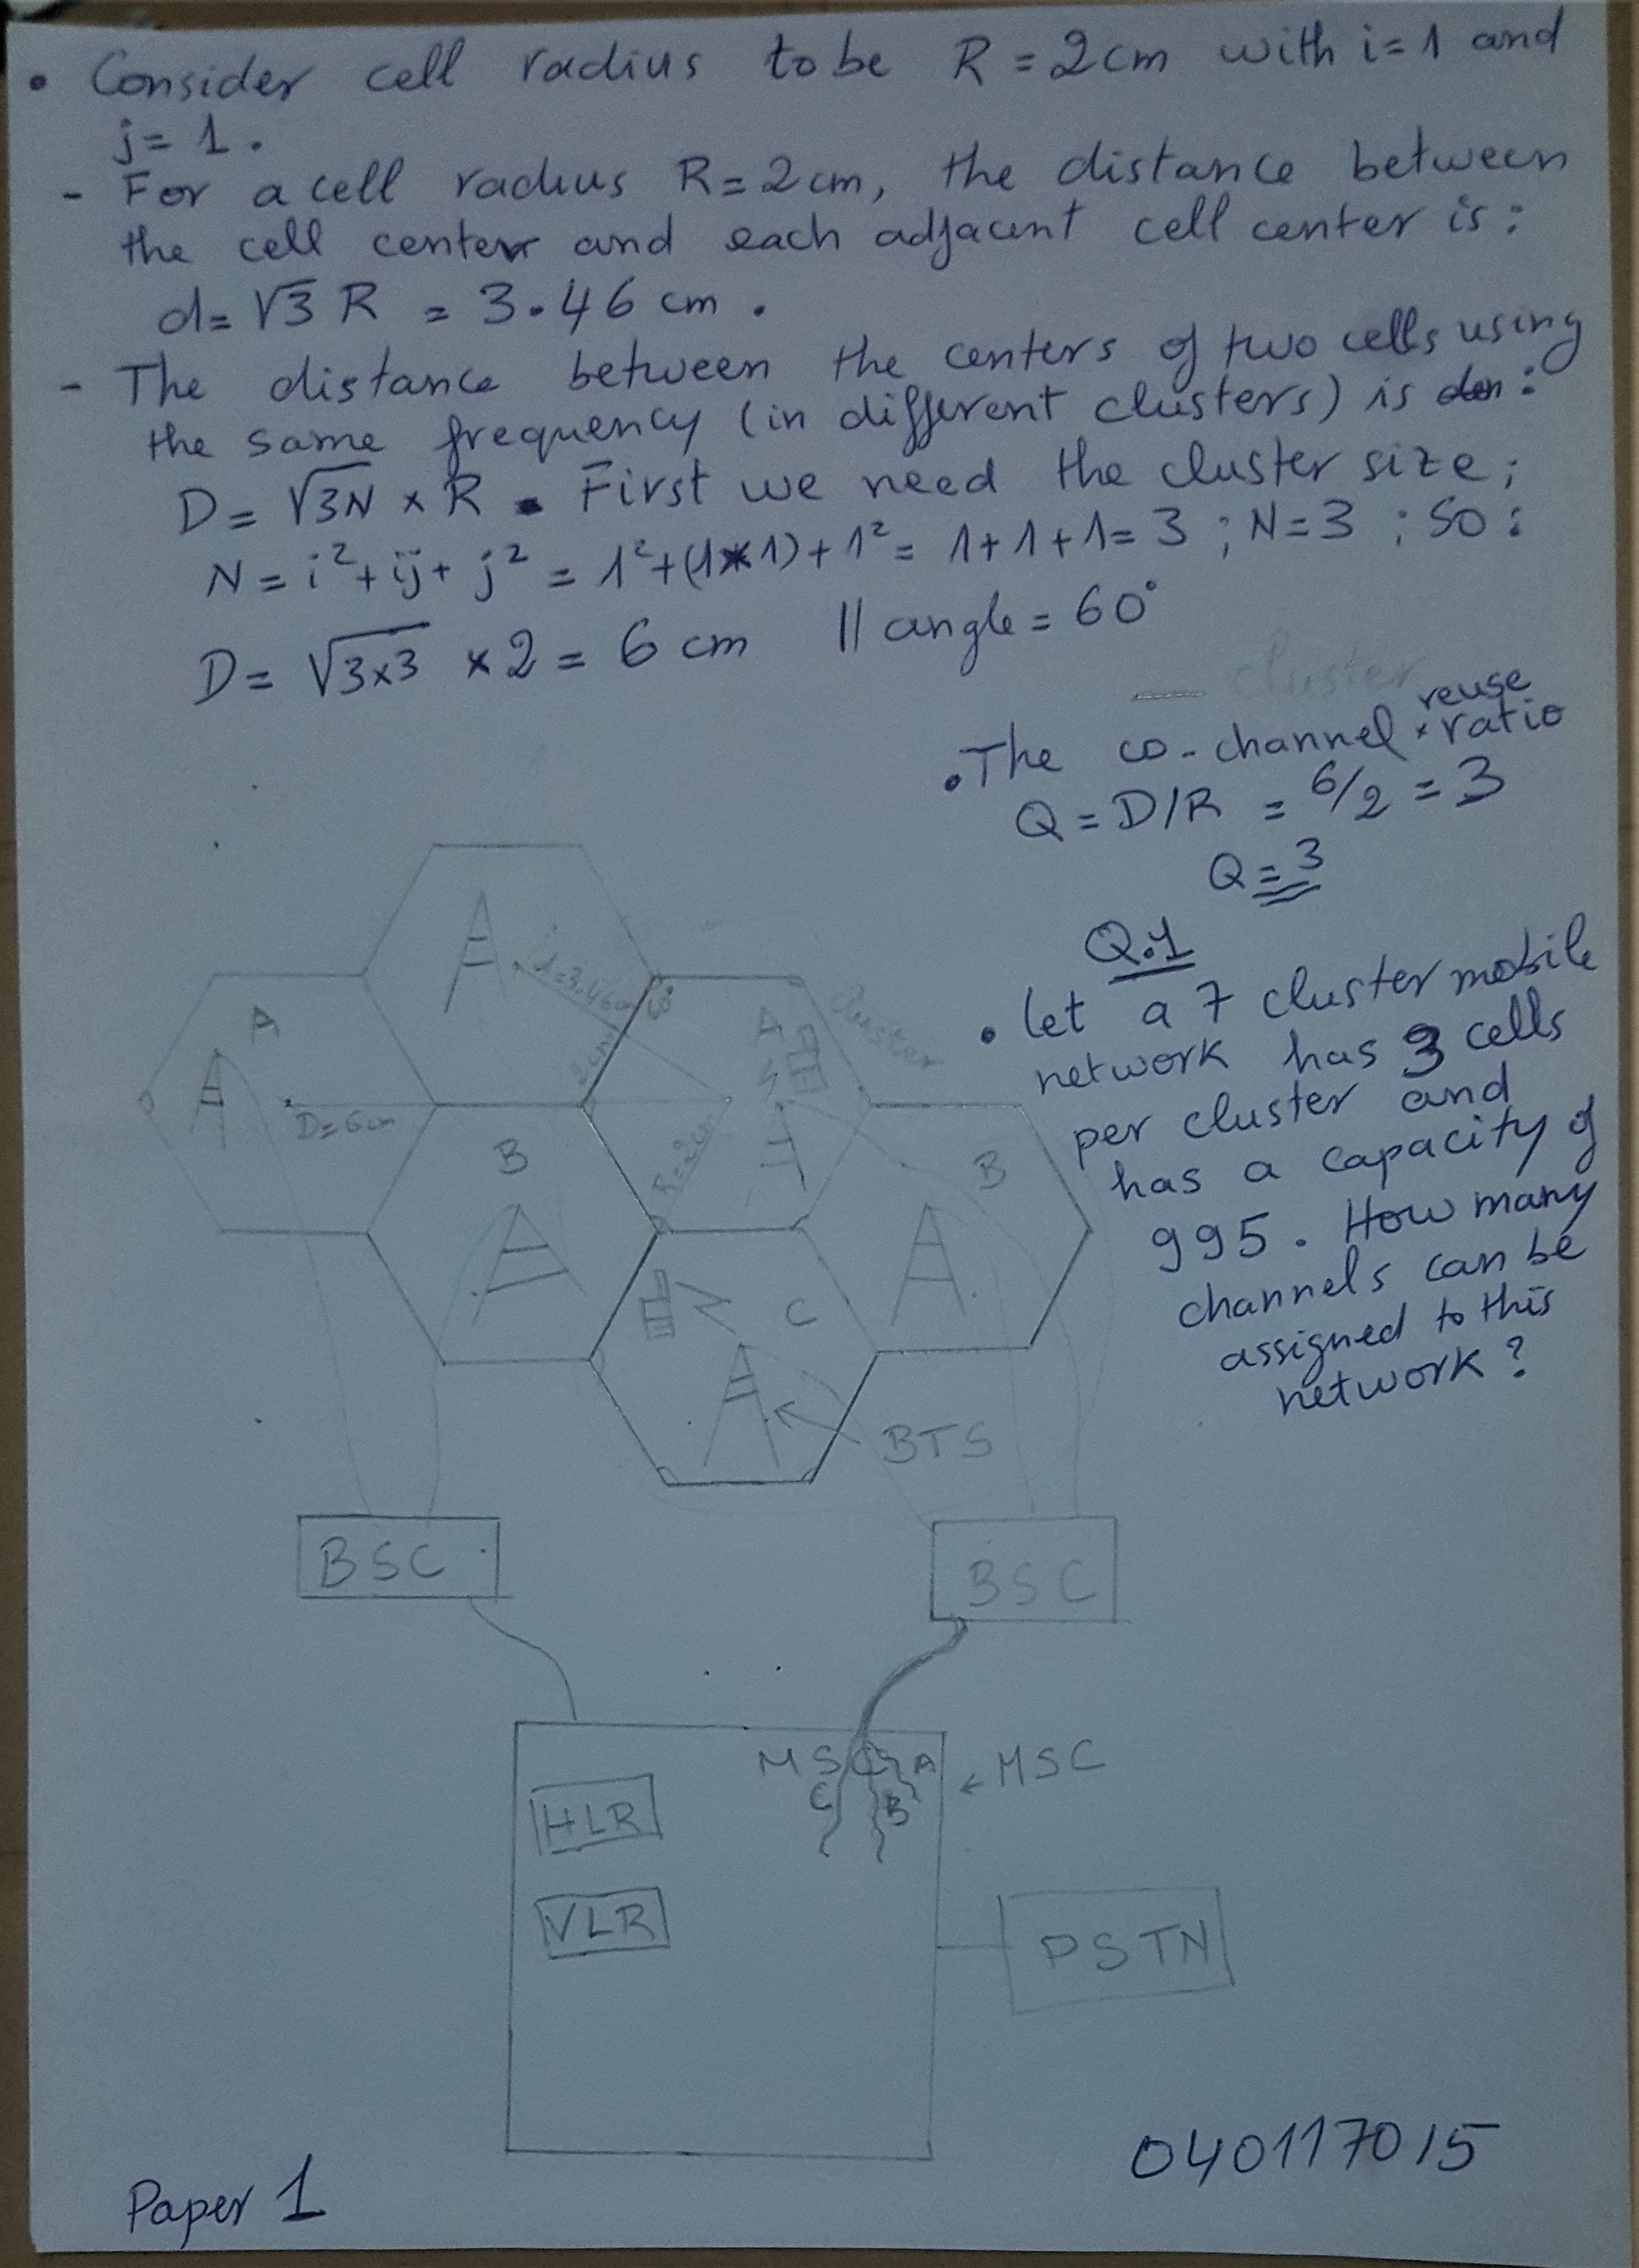 • Consider cell radius to be R = 2cm with i=1 and
j=1.
- For a cell radius R=2cm, the distance between
the cell center and each adjacent cell center is:
d=√3 R = 3.46 cm.
- The distance between the centers of two cells using
the same frequency (in different clusters) is :
D = √3N × R . First we need the cluster size;
N = i² + ij + j² = 1² + (1*1) + 1² = 1+1+1=3 ; N=3 ; so :
D = √3×3 × 2 = 6 cm || angle = 60°
cluster
• The co-channel reuse ratio
Q = D/R = 6/2 = 3
Q = 3
Q.1
• Let a 7 cluster mobile
network has 3 cells
per cluster and
has a capacity of
995. How many
channels can be
assigned to this
network?
60°
A
A
cluster
2cm
D=6cm
B
R=2cm
B
C
BTS
BSC
BSC
MSC A
C
B
← MSC
HLR
VLR
PSTN
Paper 1
040117015